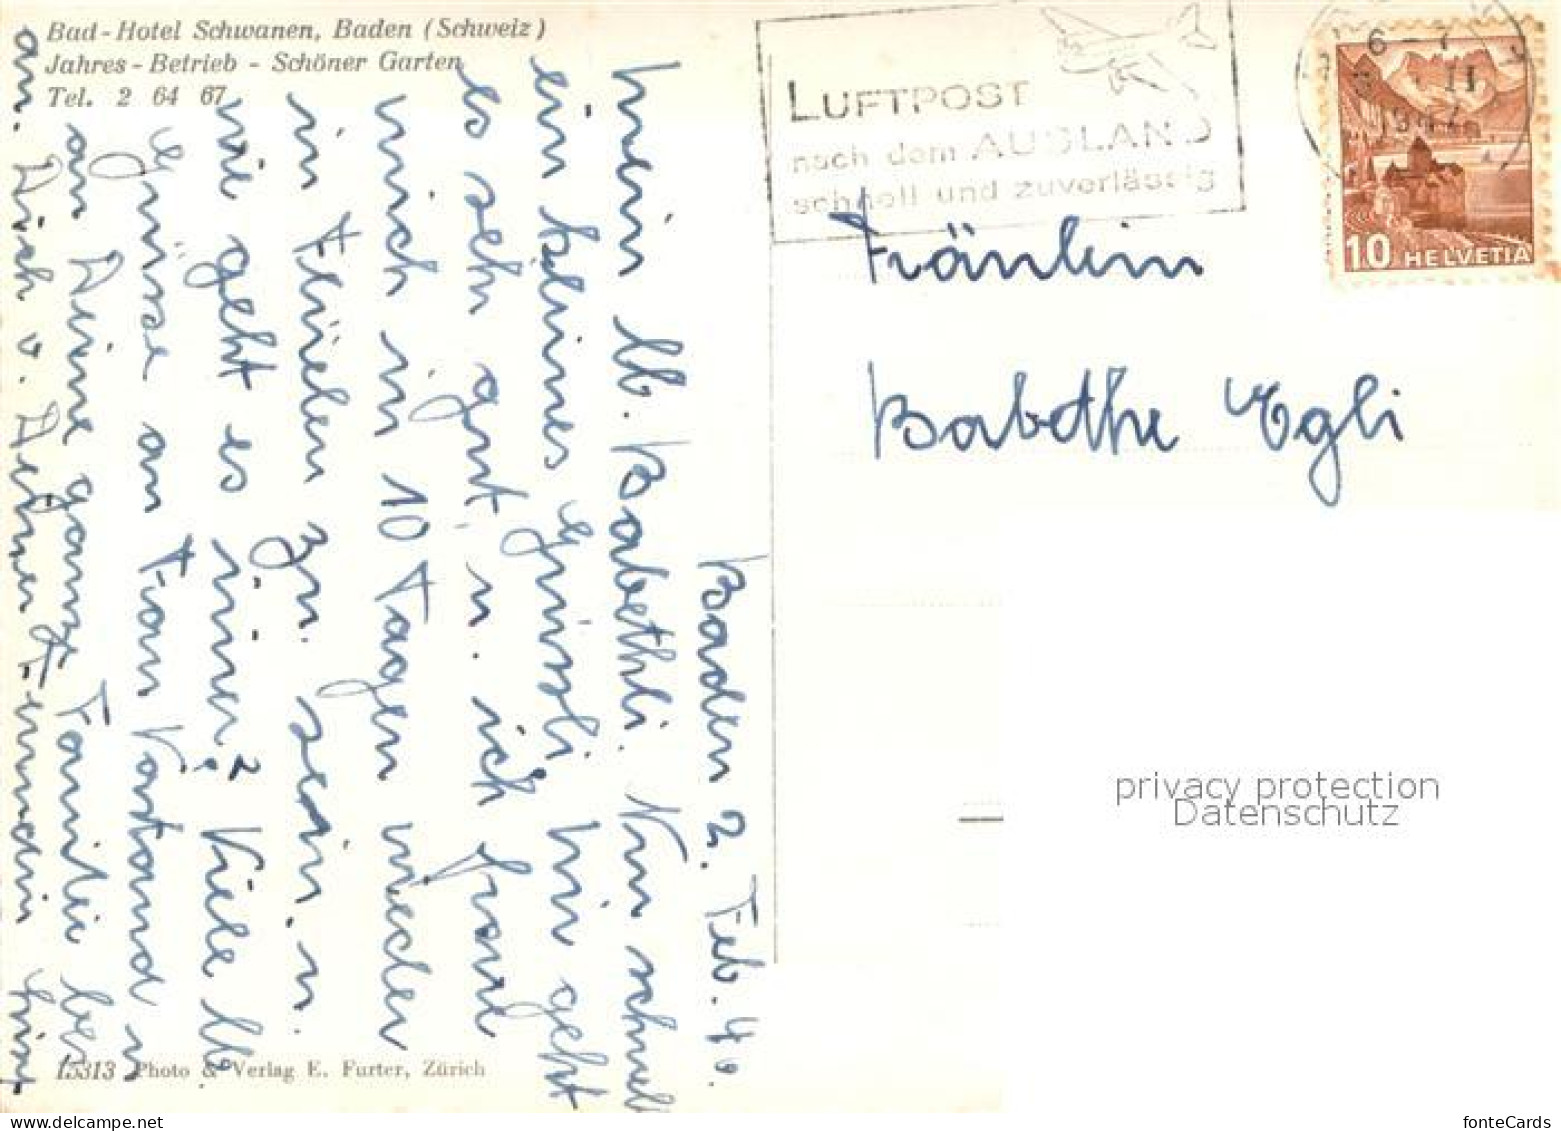 Bad-Hotel Schwanen, Baden (Schweiz)
Jahres-Betrieb - Schöner Garten
Tel. 2 64 67
LUFTPOST
nach dem AUSLAND
schnell und zuverlässig
6 - 7
II
10 HELVETIA
Fräulein
Babethe Egli
Baden 2. Feb. 40.
Mein lb. Babethli. Nur schnell
ein kleines Grüssli. Mir geht
es sehr gut, u. ich freue
mich in 10 Tagen wieder
in Flüelen zu sein. u.
wie geht es immer? Viele lb
Grüsse an Frau Vorstand u
an Deine ganze Familie bes
an. Dich v. Deiner Freundin
15313 Photo & Verlag E. Furter, Zürich
privacy protection
Datenschutz
fonteCards